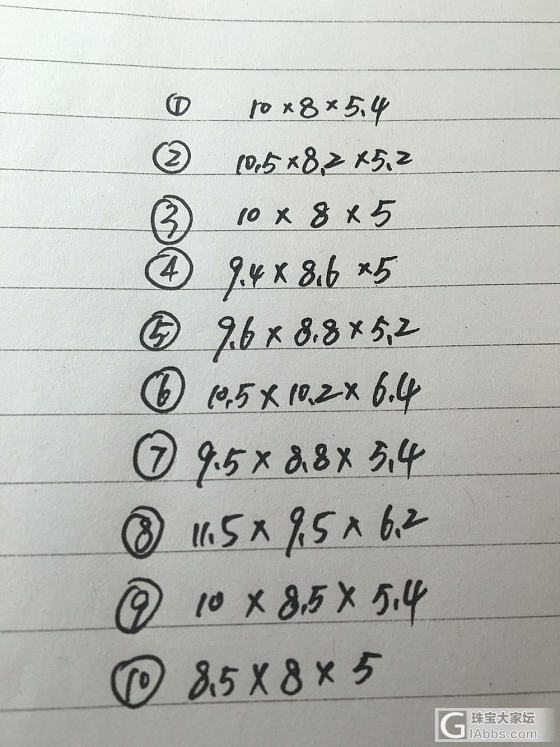 ① 10×8×5.4
② 10.5×8.2×5.2
③ 10×8×5
④ 9.4×8.6×5
⑤ 9.6×8.8×5.2
⑥ 10.5×10.2×6.4
⑦ 9.5×8.8×5.4
⑧ 11.5×9.5×6.2
⑨ 10×8.5×5.4
⑩ 8.5×8×5
G 珠宝大家坛
GIAbbs.com